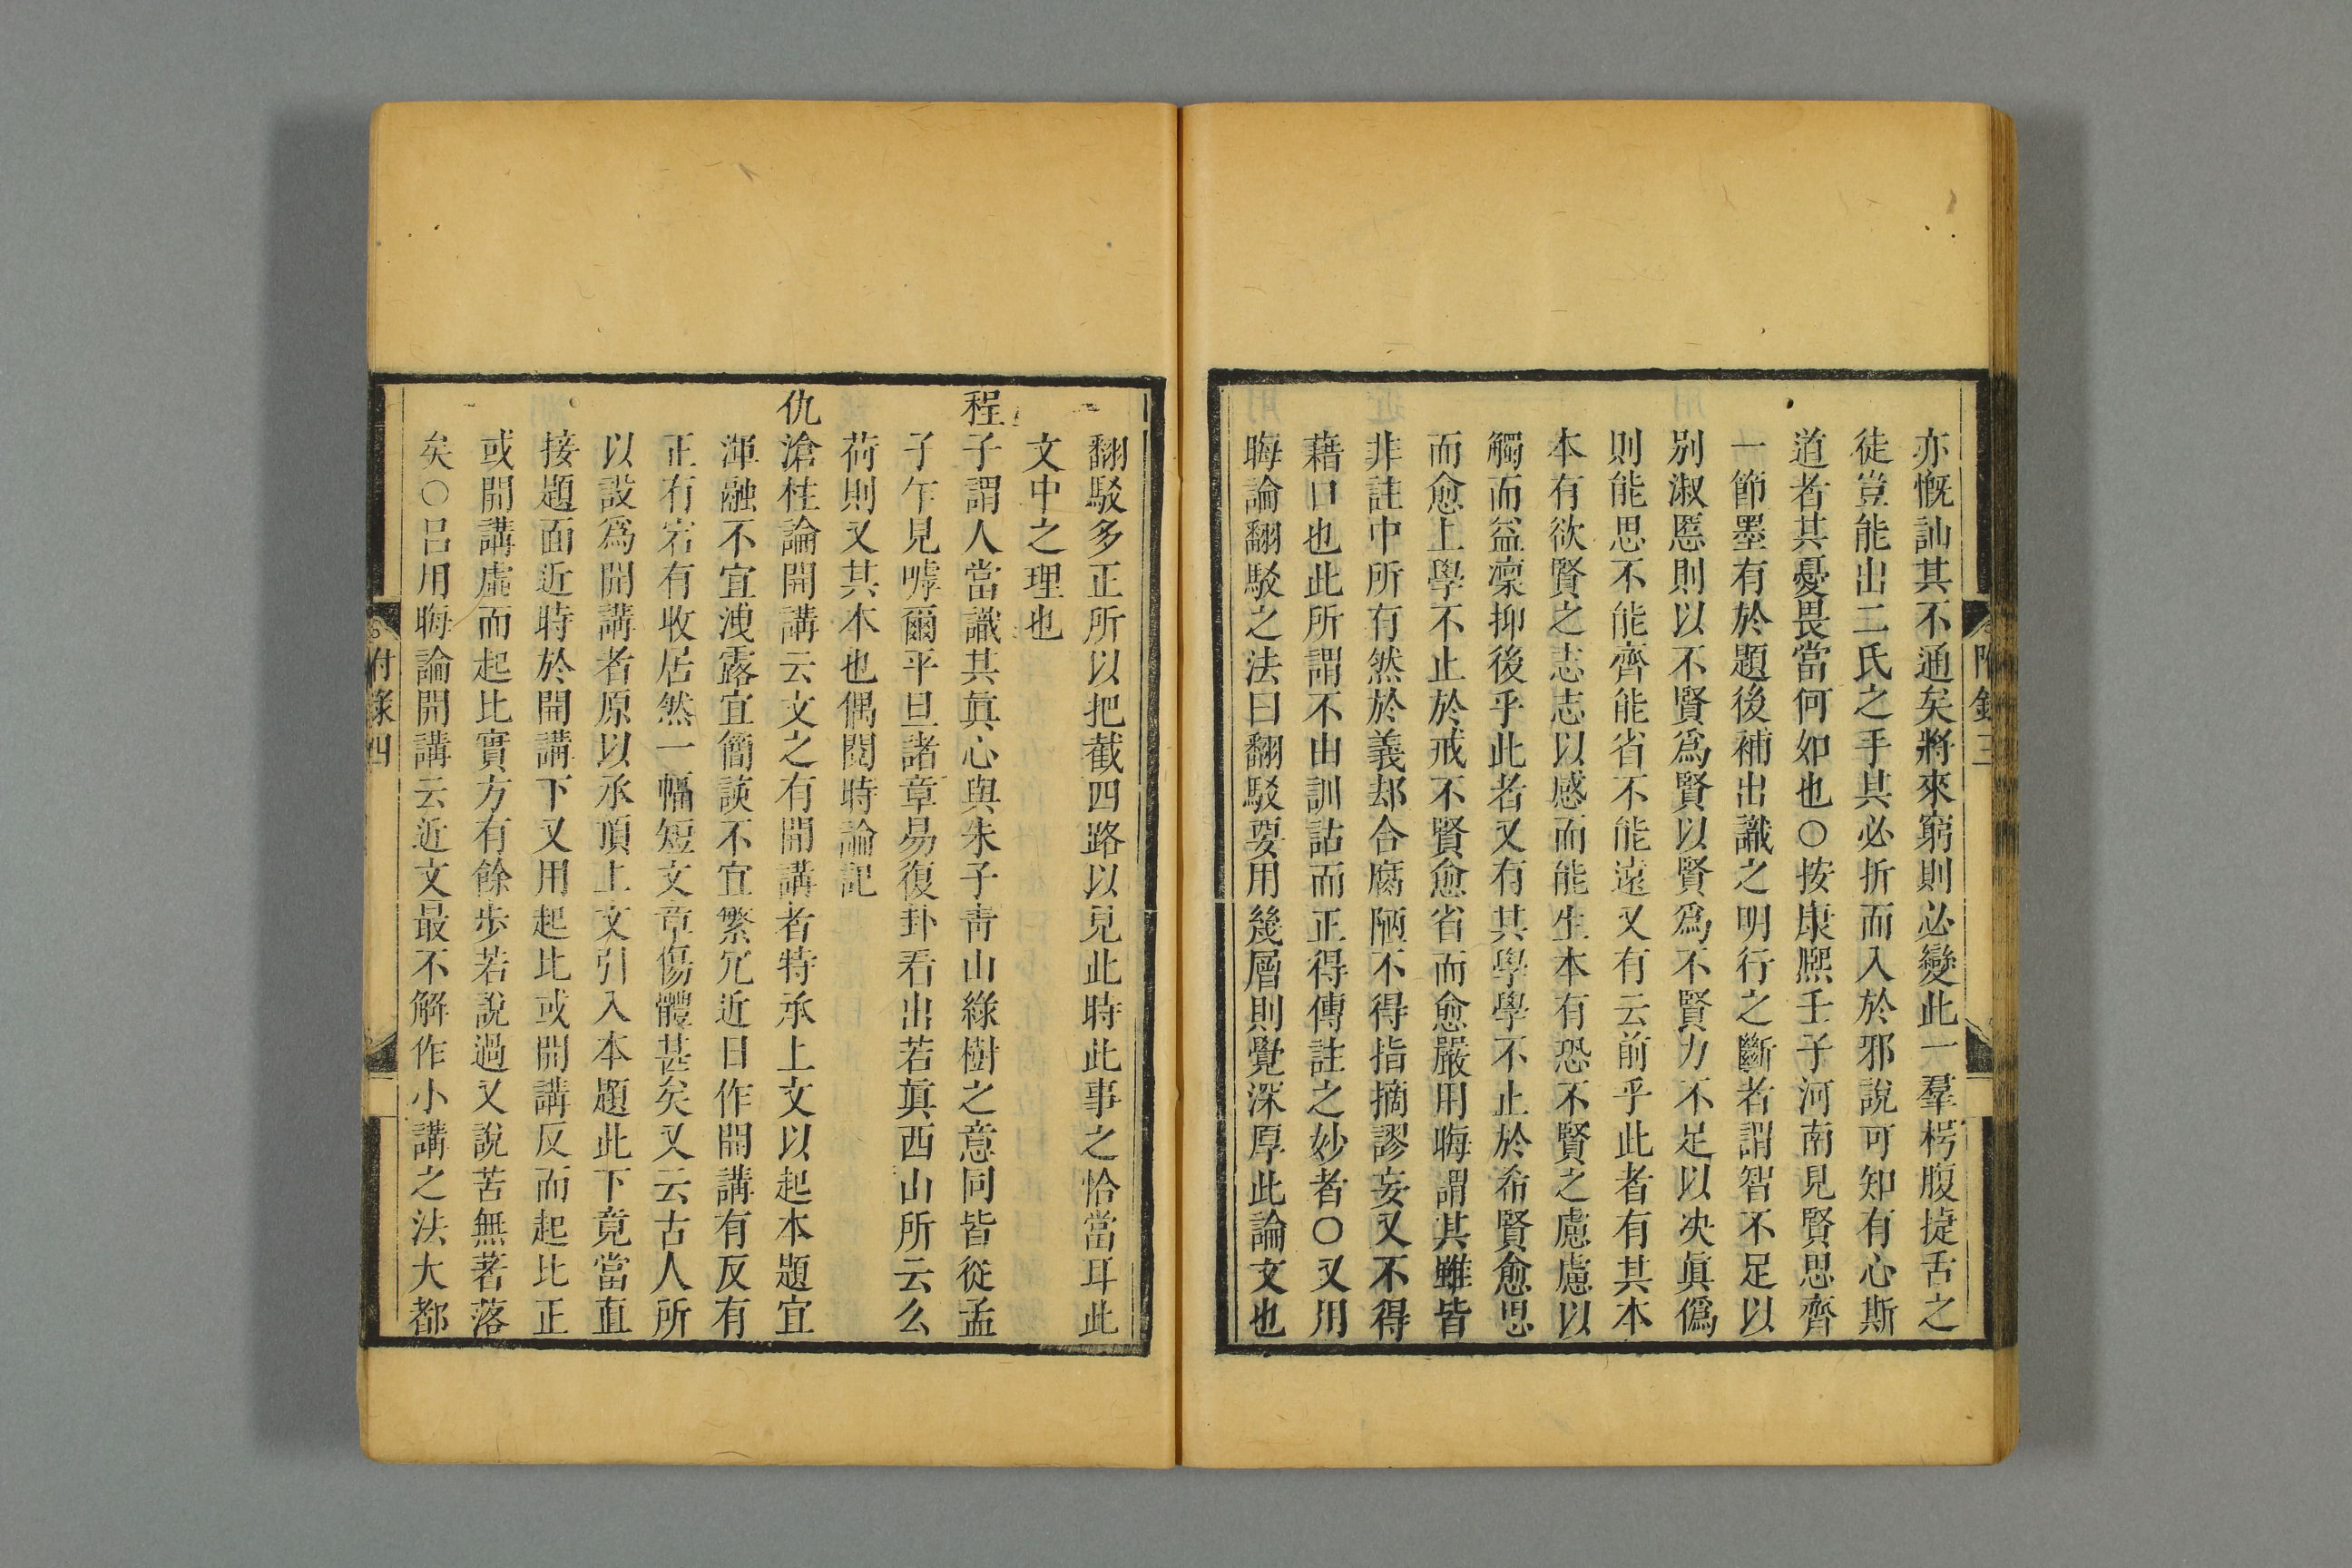 附錄三
亦慨訕其不通矣將來窮則必變此一羣枵腹捷舌之
徒豈能出二氏之手其必折而入於邪說可知有心斯
道者其憂畏當何如也○按康熈壬子河南見賢思齊
一節墨有於題後補出識之明行之斷者謂智不足以
別淑慝則以不賢爲賢以賢爲不賢力不足以决眞僞
則能思不能齊能省不能遠又有云前乎此者有其本
本有欲賢之志志以感而能生本有恐不賢之慮慮以
觸而益凜抑後乎此者又有其學學不止於希賢愈思
而愈上學不止於戒不賢愈省而愈嚴用晦謂其雖皆
非註中所有然於義却合腐陋不得指摘謬妄又不得
藉口也此所謂不由訓詁而正得傳註之妙者○又用
晦論翻駁之法曰翻駁要用幾層則覺深厚此論文也
翻駁多正所以把截四路以見此時此事之恰當耳此
文中之理也
程子謂人當識其眞心與朱子靑山綠樹之意同皆從孟
子乍見嘑爾平旦諸章易復卦看出若眞西山所云么
荷則又其本也偶閱時論記
仇滄柱論開講云文之有開講者特承上文以起本題宜
渾融不宜洩露宜簡該不宜繁冗近日作開講有反有
正有宕有收居然一幅短文章傷體甚矣又云古人所
以設爲開講者原以承頂上文引入本題此下竟當直
接題面近時於開講下又用起比或開講反而起比正
或開講虛而起比實方有餘步若說過又說苦無著落
矣○呂用晦論開講云近文最不解作小講之法大都
附錄四